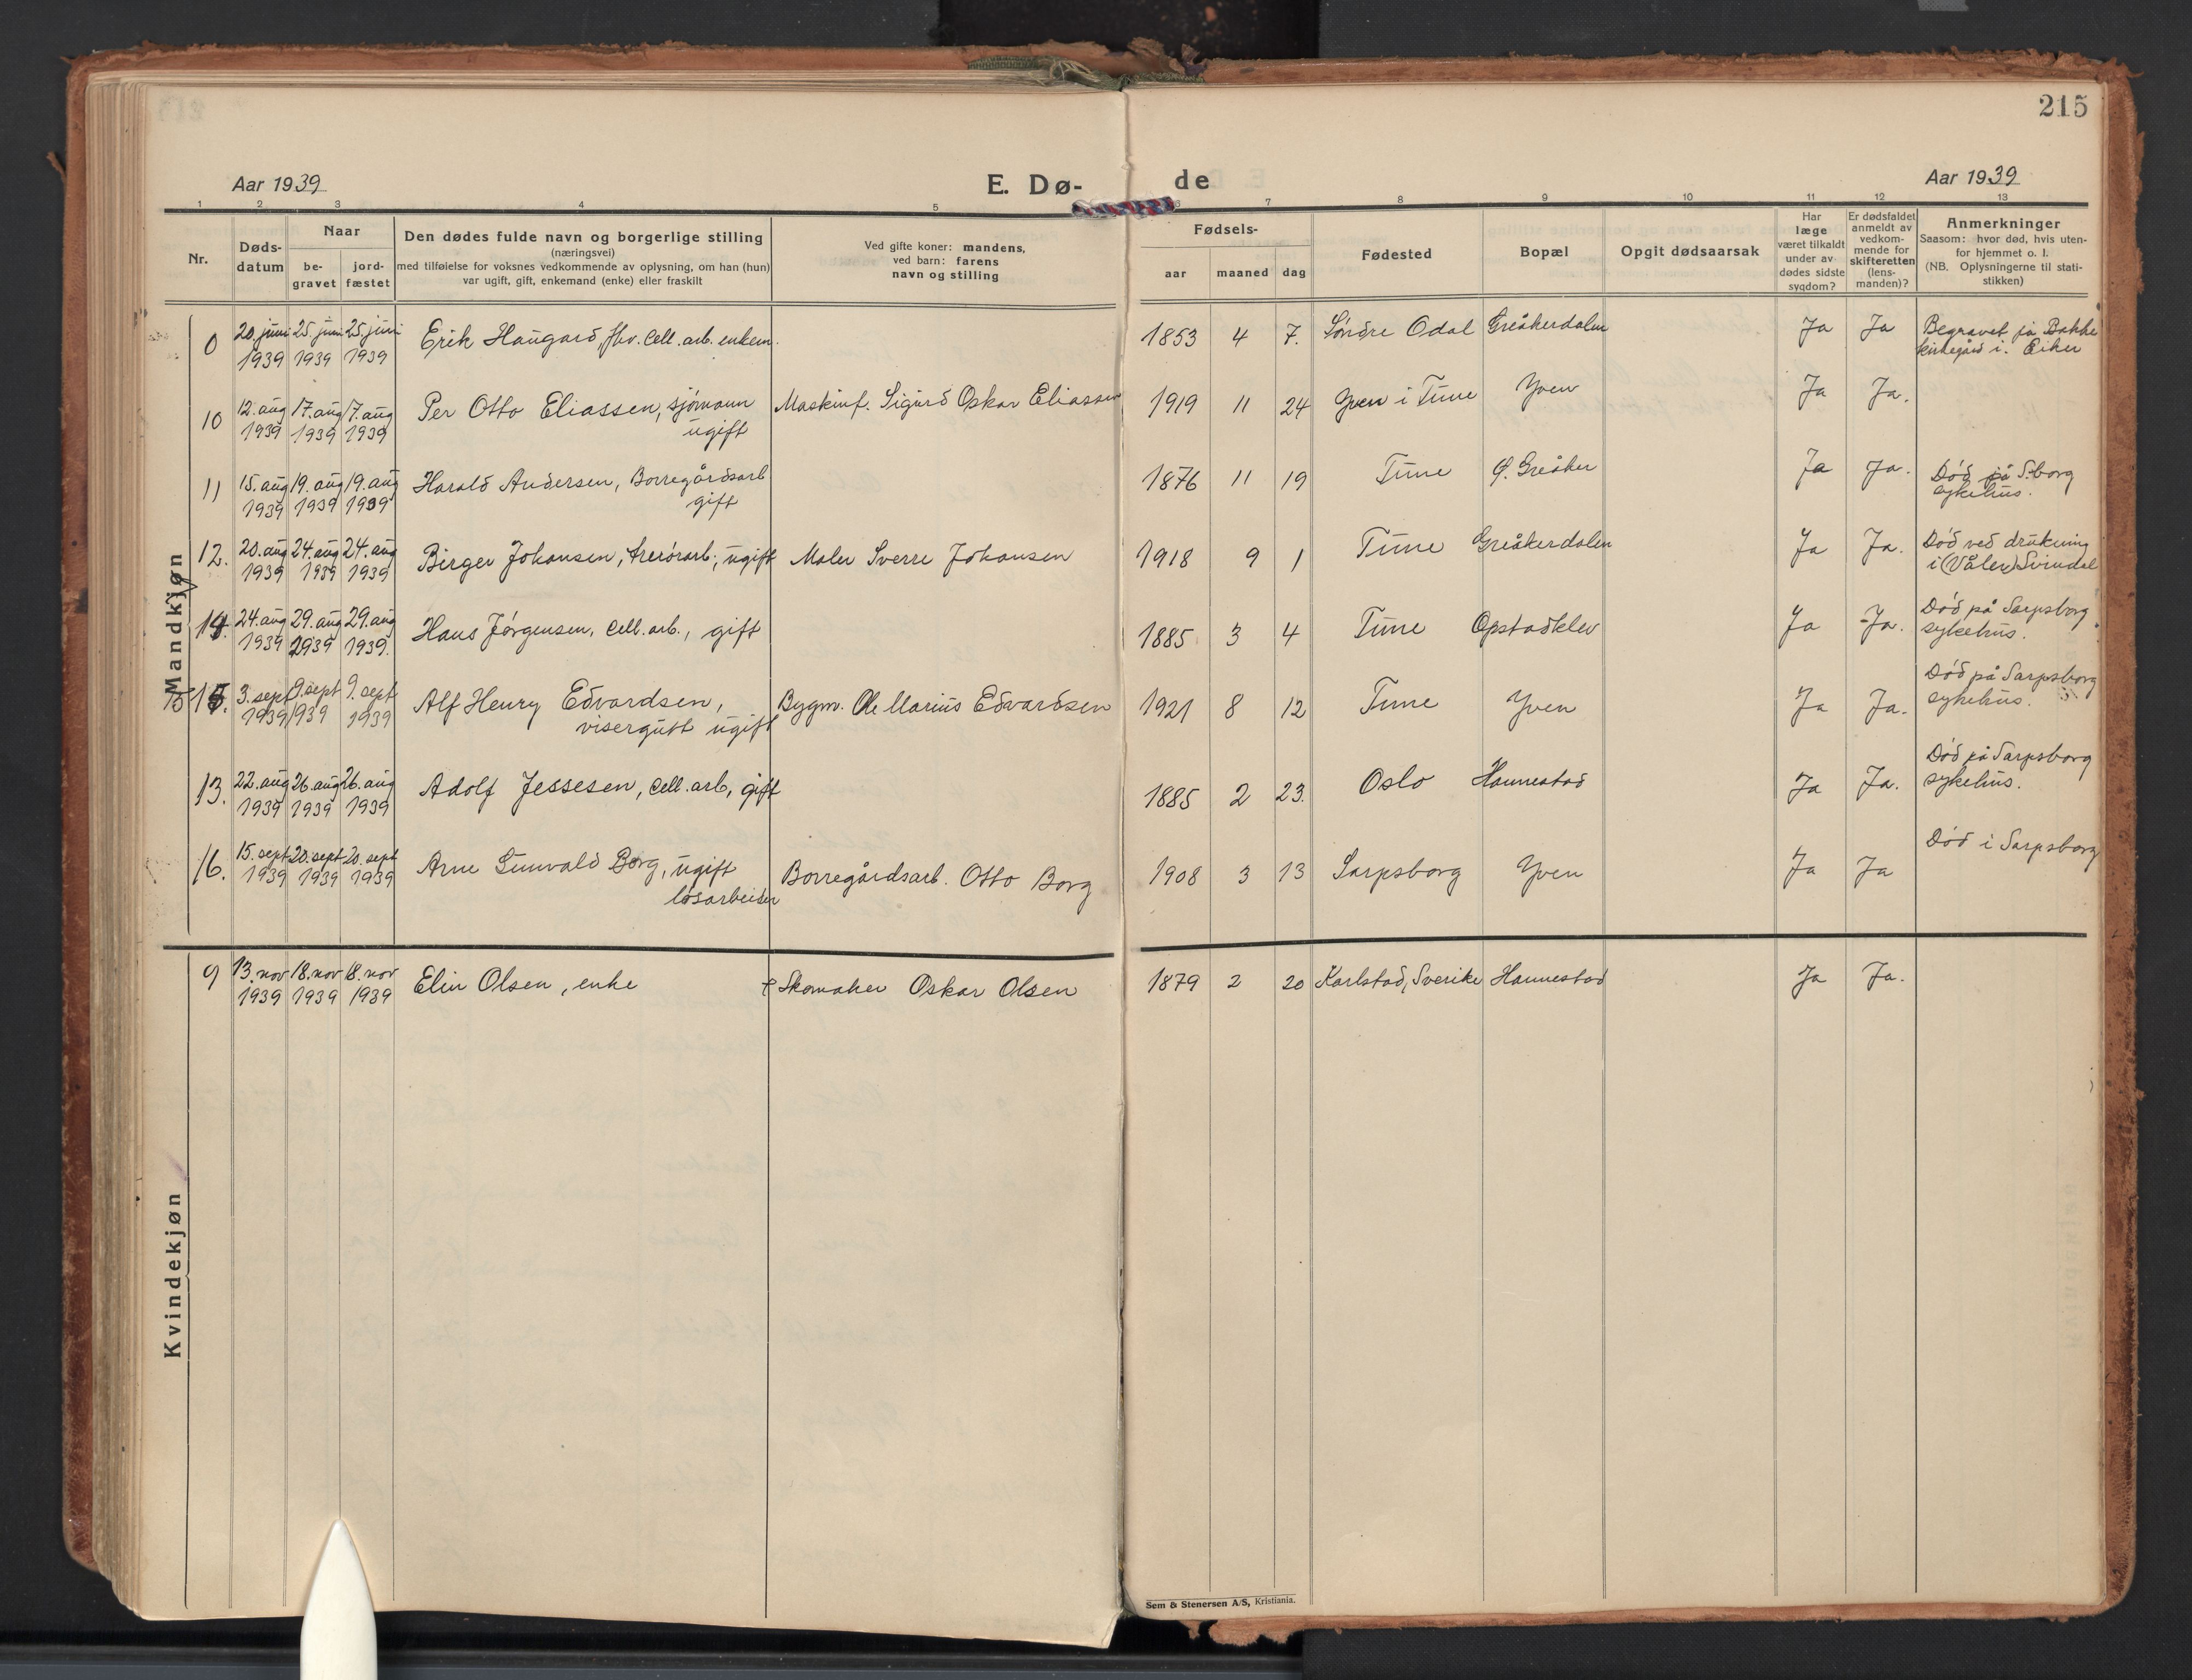 215
Aar 1939
E. Dø-
de
Aar 1939
1 2 3 4 5 6 7 8 9 10 11 12 13
Nr.
Døds-
datum
Naar
be-
gravet
jord-
fæstet
Den dødes fulde navn og borgerlige stilling
(næringsvei)
med tilføielse for voksnes vedkommende av oplysning, om han (hun)
var ugift, gift, enkemand (enke) eller fraskilt
Ved gifte koner: mandens,
ved barn: farens
navn og stilling
Fødsels-
aar maaned dag
Fødested
Bopæl
Opgit dødsaarsak
Har
læge
været tilkaldt
under av-
dødes sidste
sygdom?
Er dødsfaldet
anmeldt av
vedkom-
mende for
skifteretten
(lens-
manden)?
Anmerkninger
Saasom: hvor død, hvis uten-
for hjemmet o. l.
(NB. Oplysningerne til stati-
stikken)
Mandkjøn
0 20. juni 25. juni 25. juni Erik Haugard, fhv. Cell. arb. enkem. 1853 4 7. Søndre Odal Greåkerdalen Ja Ja Begravet på Bakke
1939 1939 1939 kirkegård i. Eiker
10 12. aug 17. aug 17. aug Per Otto Eliassen, sjømann Maskinf. Sigurd Oskar Eliassen 1919 11 24 Yven i Tune Yven Ja Ja.
1939 1939 1939 ugift
11 15. aug 19. aug 19. aug Harald Andersen, Borregårdsarb 1876 11 19 Tune Ø. Greåker Ja Ja. Død på S.borg
1939 1939 1939 gift sykehus.
12. 20. aug 24. aug 24. aug Birger Johansen, trerørarb; ugift Maler Sverre Johansen 1918 9 1 Tune Greåkerdalen Ja Ja. Død ved drukning
1939 1939 1939 i (Våler) Svindal
14. 24. aug 29. aug 29. aug Hans Jørgensen, Cell. arb., gift 1885 3 4 Tune Opstadklev Ja Ja. Død på Sarpsborg
1939 1939 1939. sykehus.
15 15. 3. sept 9. sept 9. sept Alf Henry Edvardsen, Bygm. Ole Marius Edvardsen 1921 8 12 Tune Yven Ja Ja. Død på Sarpsborg
1939 1939 1939 visergutt ugift sykehus.
13. 22. aug 26. aug 26. aug Adolf Jessesen, Cell. arb, gift 1885 2 23. Oslo Hannestad Ja Ja. Død på Sarpsborg
1939 1939 1939 sykehus.
16. 15. sept 20. sept 20. sept Arne Gunvald Borg, ugift Borregårdsarb. Otto Borg 1908 3 13 Sarpsborg Yven Ja Ja Død i Sarpsborg
1939 1939 1939 løsarbeider
Kvindekjøn
9 13. nov 18. nov 18. nov Elin Olsen, enke † Skomaker Oskar Olsen 1879 2 20 Karlstad, Sverike Hannestad Ja Ja.
1939 1939 1939
Sem & Stenersen A/S, Kristiania.